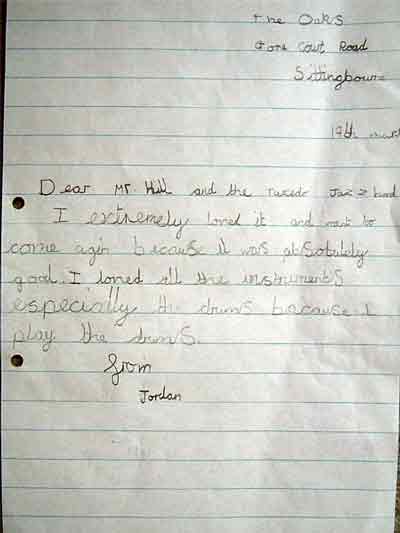 the Oaks
Gore Court Road
Sittingbourne
19th march
Dear Mr Hill and the tuxedo Jazz band
I extremely loved it and want to
come agin because it was absotutely
good. I loved all the instruments
especially the drums because I
play the drums.
from
Jordan